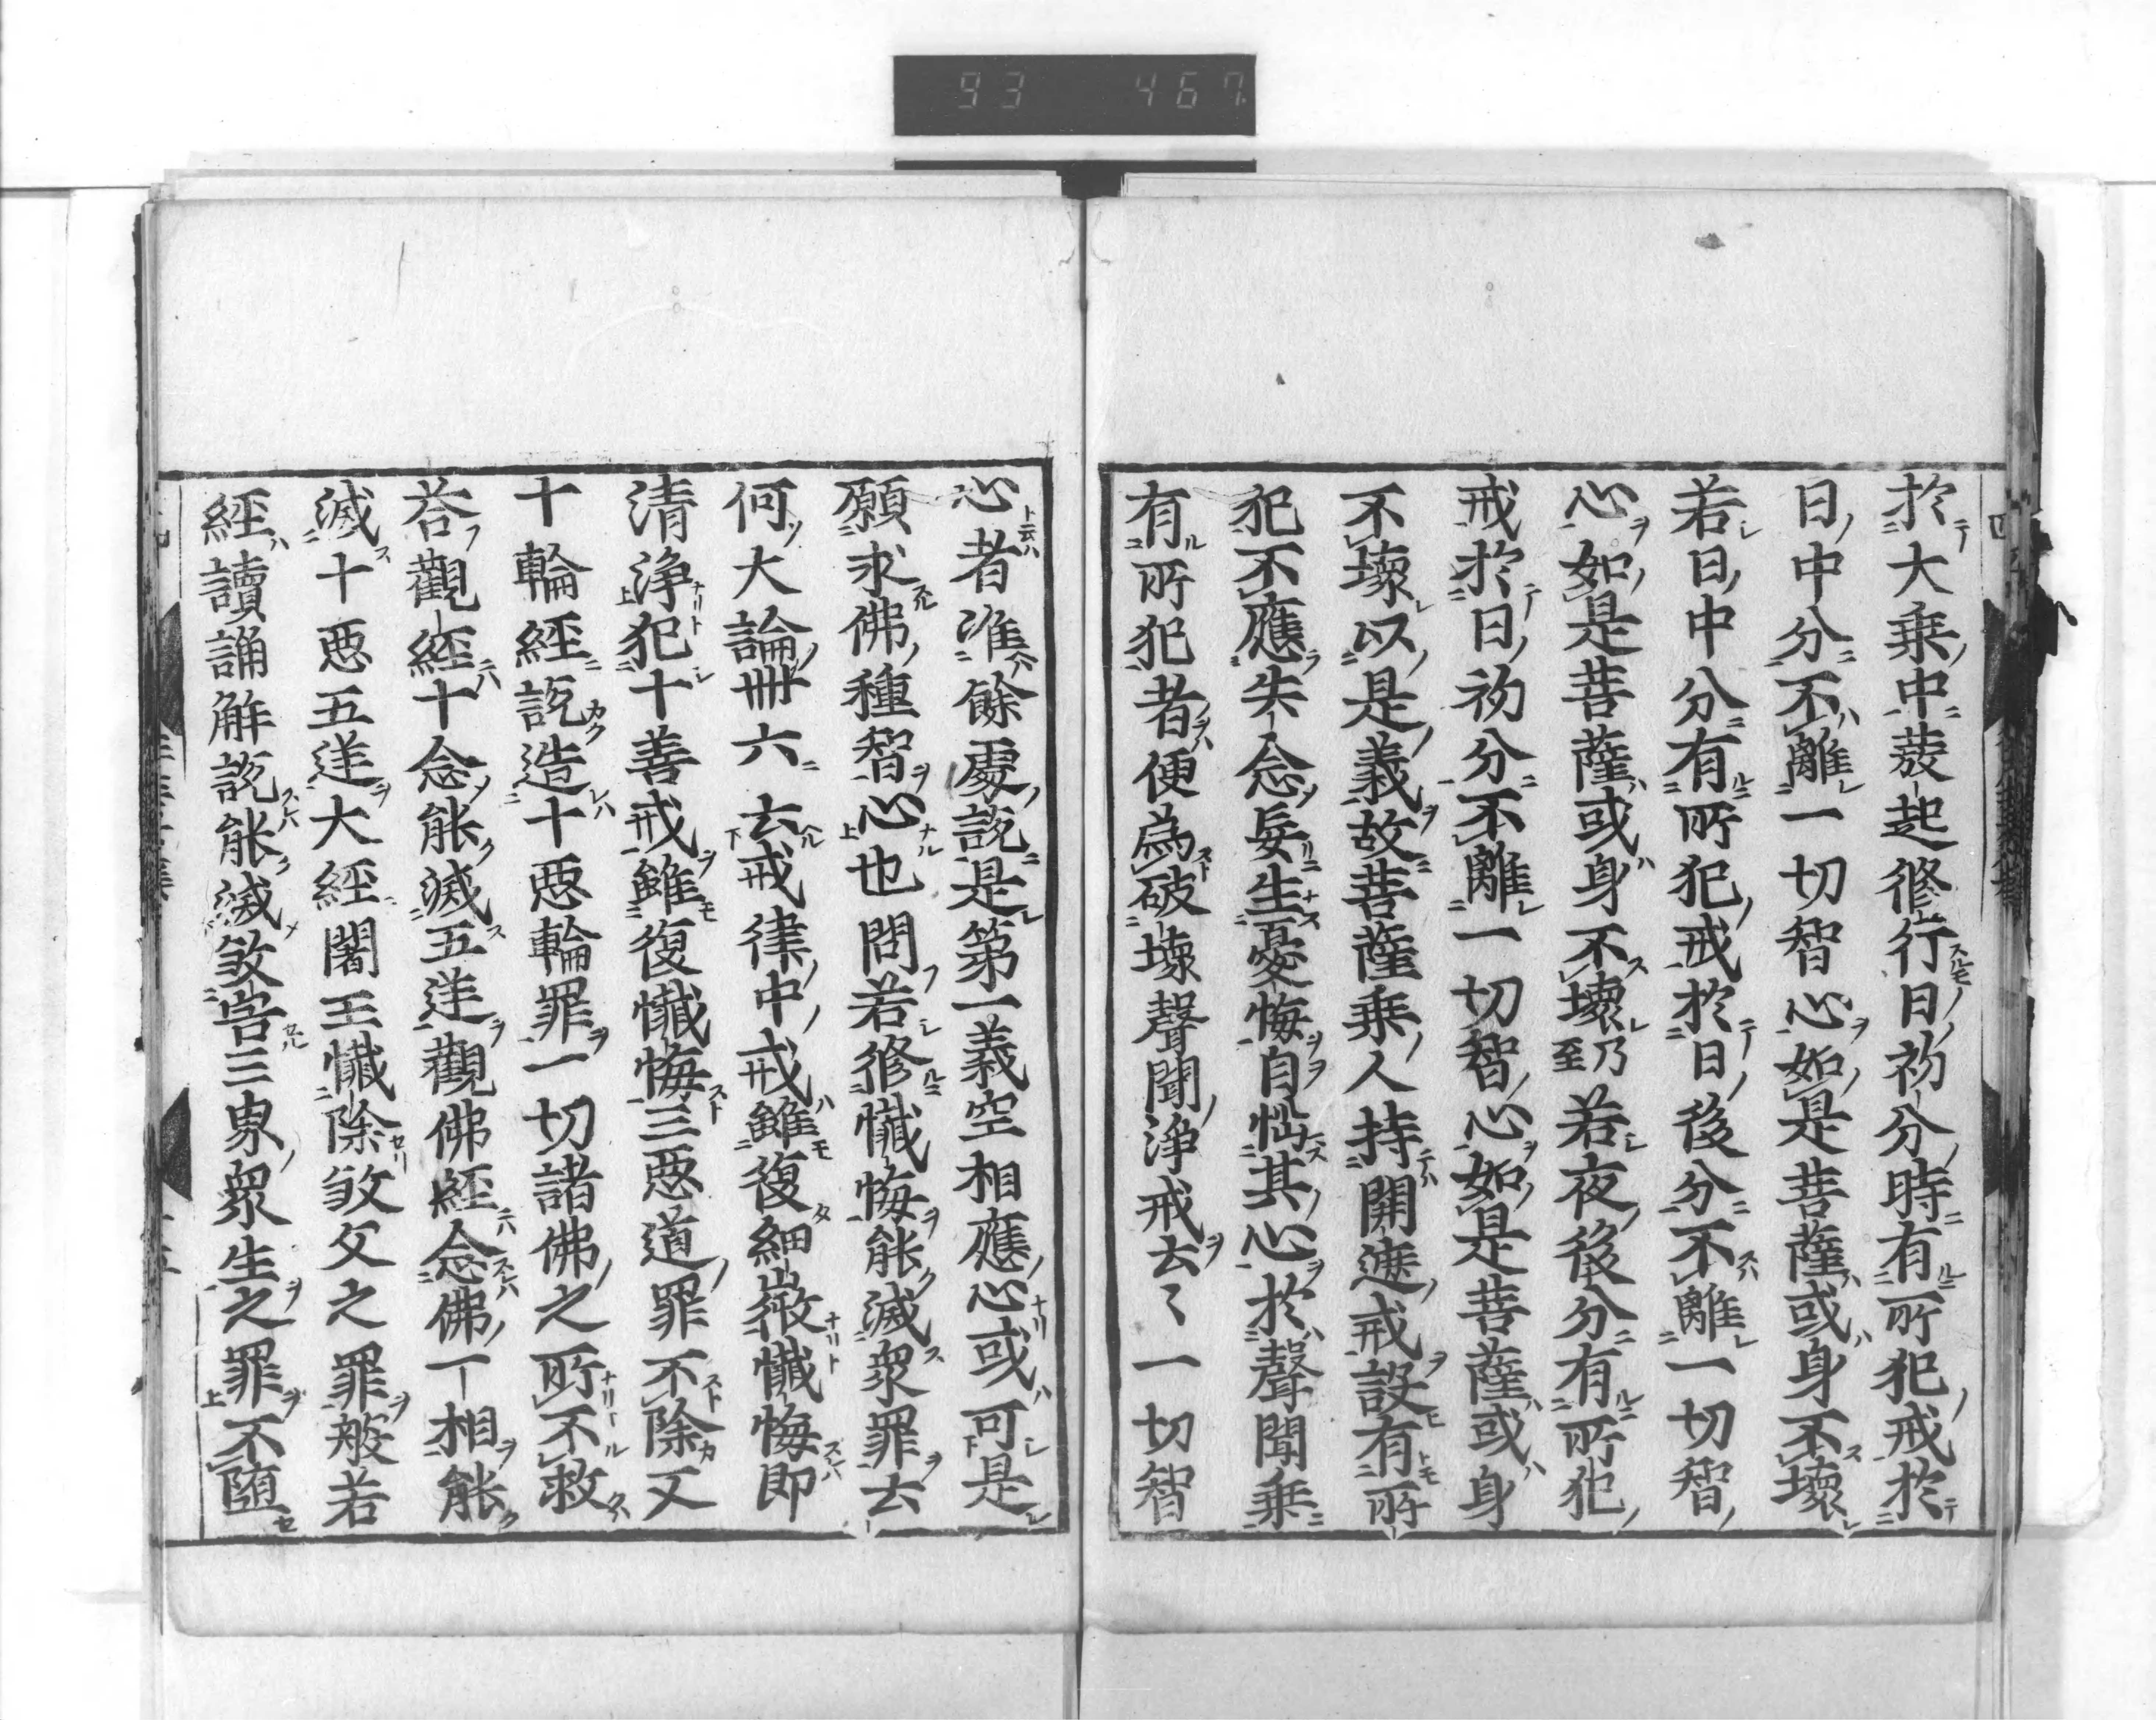 於大乘中發起修行日初分時有所犯戒於
日中分不離一切智心如是菩薩或身不壞
若日中分有所犯戒於日後分不離一切智
心如是菩薩或身不壞乃至若夜後分有所犯
戒於日初分不離一切智心如是菩薩或身
不壞以是義故菩薩乘人持開遮戒設有所
犯不應失念妄生憂悔自惱其心於聲聞乘
有所犯者便為破壞聲聞淨戒云〻一切智
心者准餘處說是第一義空相應心或可是
願求佛種智心也問若修懺悔能滅衆罪云
何大論卌六云戒律中戒雖復細微懺悔即
清淨犯十善戒雖復懺悔三惡道罪不除又
十輪經說造十惡輪罪一切諸佛之所不救
荅觀經十念能滅五逆觀佛經念佛一相能
滅十惡五逆大經闍王懺除敓父之罪般若
經讀誦解說能滅敓害三界衆生之罪不墮
93 467